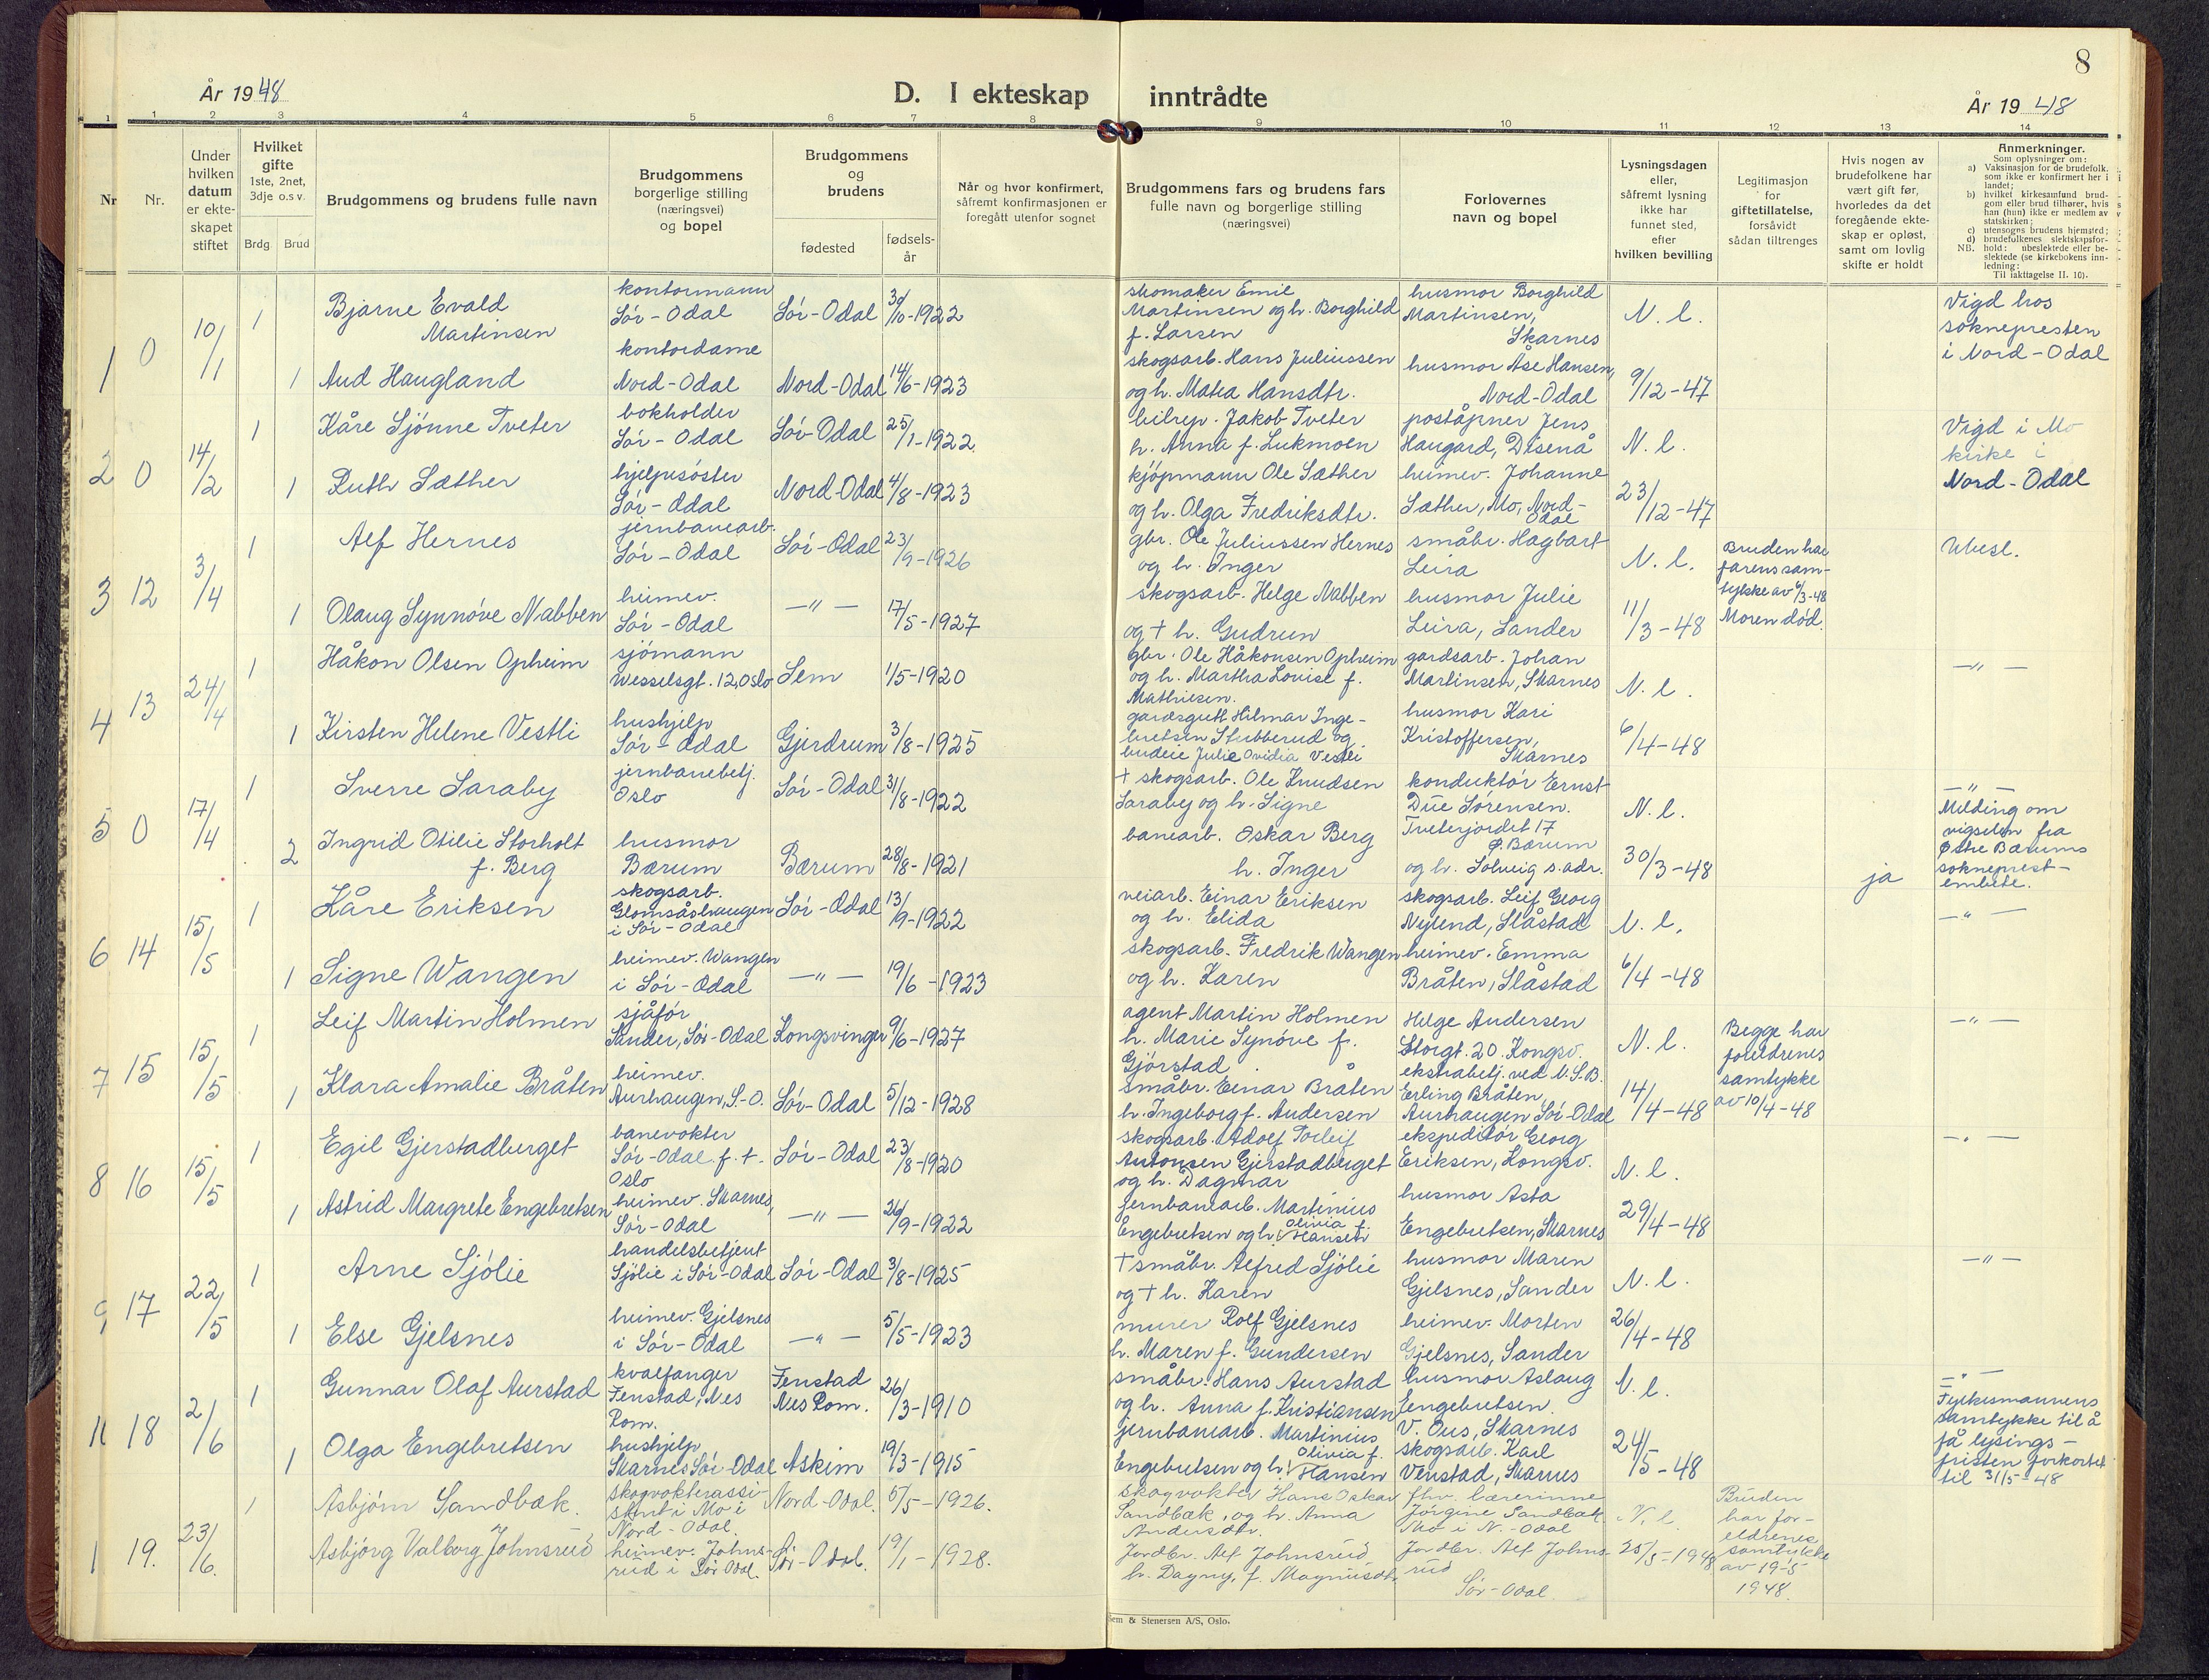 8
År 1948
D. I ekteskap inntrådte
År 1948
1 1 2 3 4 5 6 7 8 9 10 11 12 13 14
Nr
Nr.
Under
hvilken
datum
er ekte-
skapet
stiftet
Hvilket
gifte
1ste, 2net,
3dje o.s v.
Brdg Brud
Brudgommens og brudens fulle navn
Brudgommens
borgerlige stilling
(næringsvei)
og bopel
Brudgommens
og
brudens
fødested
fødsels-
år
Når og hvor konfirmert,
såfremt konfirmasjonen er
foregått utenfor sognet
Brudgommens fars og brudens fars
fulle navn og borgerlige stilling
(næringsvei)
Forlovernes
navn og bopel
Lysningsdagen
eller,
såfremt lysning
ikke har
funnet sted,
efter
hvilken bevilling
Legitimasjon
for
giftetillatelse,
forsåvidt
sådan tiltrenges
Hvis nogen av
brudefolkene har
vært gift før,
hvorledes da det
foregående ekte-
skap er opløst,
samt om lovlig
skifte er holdt
Anmerkninger.
Som oplysninger om:
a) Vaksinasjon for de brudefolk.
som ikke er konfirmert her i
landet;
b) hvilket kirkesamfund brud-
gom eller brud tilhører, hvis
han (hun) ikke er medlem av
statskirken;
c) utensogns brudens hjemsted;
d) brudefolkenes slektskapsfor-
NB. hold: ubeslektede eller be-
slektede (se kirkebokens inn-
ledning;
Til iakttagelse II. 10).
1 0 10/1
1 Bjarne Evald
Martinsen
kontormann
Sør-Odal
Sør-Odal 30/10-1922
skomaker Emil
Martinsen og h. Borghild
f. Larsen
husmor Borghild
Martinsen,
Skarnes
N. l.
Vigd hos
soknepresten
i Nord-Odal
1 Aud Haugland
kontordame
Nord-Odal
Nord-Odal 14/6-1923
skogsarb. Hans Juliussen
og h. Matea Hansdtr.
husmor Åse Hansen,
Nord-Odal
9/12-47
2 0 14/2
1 Kåre Sjønne Tveter
bokholder
Sør-Odal
Sør-Odal 25/1-1922
bilrep. Jakob Tveter
h. Anna f. Lukmoen
poståpner Jens
Haugard, Disenå
N. l.
Vigd i Mo
kirke i
Nord-Odal
1 Ruth Sæther
hjelpesøster
Sør-Odal
Nord-Odal 4/8-1923
kjøpmann Ole Sæther
og h. Olga Fredriksdtr.
heimev. Johanne
Sæther, Mo, Nord-
Odal
23/12-47
3 12 3/4
1 Alf Hernes
jernbanearb.
Sør-Odal
Sør-Odal 23/9-1926
gbr. Ole Juliussen Hernes
og h. Inger
småbr. Hagbart
Leira
N. l.
Bruden har
farens sam-
tykke av 6/3-48
Moren død.
Ubesl.
1 Olaug Synnøve Nabben
heimev.
Sør-Odal
—"— 17/5-1927
skogsarb. Helge Nabben
og † h. Gudrun
husmor Julie
Leira, Sander
11/3-48
4 13 24/4
1 Håkon Olsen Opheim
sjømann
Wesselsgt. 12, Oslo
Sem 1/5-1920
gbr. Ole Håkonsen Opheim
og h. Martha Lovise f.
Mathiesen.
gardsarb. Johan
Martinsen, Skarnes
N. l.
—"—
1 Kirsten Helene Vestli
hushjelp
Sør-Odal
Gjerdrum 3/8-1925
gardsgutt Hilmar Inge-
bretsen Stubberud og
budeie Julie Ovidia Vestli
husmor Kari
Kristoffersen,
Skarnes
6/4-48
5 0 17/4
1 Sverre Saraby
jernbanebetj.
Oslo
Sør-Odal 31/8-1922
† skogsarb. Ole Knudsen
Saraby og h. Signe
konduktør Ernst
Due Sørensen.
Tveterjordet 17
Ø. Bærum
N. l.
—"—
Melding om
vigselen fra
Østre Bærums
sokneprest-
embete.
2 Ingrid Otilie Storholt
f. Berg
husmor
Bærum
Bærum 28/8-1921
banearb. Oskar Berg
h. Inger
og h. Solveig s. adr.
30/3-48
ja
6 14 15/5
1 Kåre Eriksen
skogsarb.
Glomsåshaugen
i Sør-Odal
Sør-Odal 13/9-1922
veiarb. Einar Eriksen
og h. Elida
skogsarb. Leif Georg
Nylend, Slåstad
N. l.
—"—
1 Signe Wangen
heimev. Wangen
i Sør-Odal
—"— 19/6-1923
skogsarb. Fredrik Wangen
og h. Karen
heimev. Emma
Bråten, Slåstad
6/4-48
7 15 15/5
1 Leif Martin Holmen
sjåfør
Sander, Sør-Odal
Kongsvinger 9/6-1927
agent Martin Holmen
h. Marie Synøve f.
Gjørstad
Helge Andersen
Storgt. 20. Kongsv.
ekstrabetj. ved N.S.B.
N. l.
Begge har
foreldrenes
samtykke
av 10/4-48
—"—
1 Klara Amalie Bråten
heimev.
Aurhaugen, S.-O.
Sør-Odal 5/12-1928
småbr. Einar Bråten
h. Ingeborg f. Andersen
Erling Bråten,
Aurhaugen Sør-Odal
14/4-48
8 16 15/5
1 Egil Gjerstadberget
banevokter
Sør-Odal f. t.
Oslo
Sør-Odal 23/8-1920
skogsarb. Adolf Torleif
Antonsen Gjerstadberget
og h. Dagmar
ekspeditør Georg
Eriksen, Kongsv.
N. l.
—"—
1 Astrid Margrete Engebretsen
heimev. Skarnes,
Sør-Odal
—"— 26/9-1922
jernbanearb. Martinius
Engebretsen og h. Olivia f. Hansen
husmor Asta
Engebretsen, Skarnes
29/4-48
9 17 22/5
1 Arne Sjølie
handelsbetjent
Sjølie i Sør-Odal
Sør-Odal 3/8-1925
† småbr. Alfred Sjølie
og † h. Karen
husmor Maren
Gjelsnes, Sander
N. l.
—"—
1 Else Gjelsnes
heimev. Gjelsnes
i Sør-Odal
—"— 5/5-1923
murer Rolf Gjelsnes
h. Maren f. Gundersen
heimev. Morten
Gjelsnes, Sander
26/4-48
18 2/6
1 Gunnar Olaf Aurstad
kvalfanger
Fenstad i Nes
Rom.
Fenstad
Nes Rom. 26/3-1910
småbr. Hans Aurstad
og h. Anna f. Kristiansen
husmor Aslaug
Engebretsen.
V. Ous, Skarnes
N. l.
—"—
Fylkesmannens
samtykke til å
få lysings-
fristen forkortet
til 31/5-48
1 Olga Engebretsen
hushjelp
Skarnes Sør-Odal
Askim 19/3-1915
jernbanearb. Martinius
Engebretsen og h. Olivia f. Hansen
skogsarb. Karl
Venstad, Skarnes
24/5-48
1 19. 23/6.
1 Asbjørn Sandbæk.
skogvokterassi-
stent i Mo i
Nord-Odal.
Nord-Odal. 5/5-1926.
skogvokter Hans Oskar
Sandbæk, og h. Anna
Andersdtr.
fhv. lærerinne
Jørgine Sandbæk
Mo i N.-Odal
N. l.
Bruden
har for-
eldrenes
samtykke
av 19-5
1948.
Asbjørg Valborg Johnsrud
heimev. Johns-
rud i Sør Odal.
Sør-Odal. 19/1-1928.
Jordbr. Alf Johnsrud
h. Dagny, f. Magnusdtr.
Jordbr. Alf Johns-
rud
Sør-Odal.
25/5-1948
Sem & Stenersen A/S, Oslo.